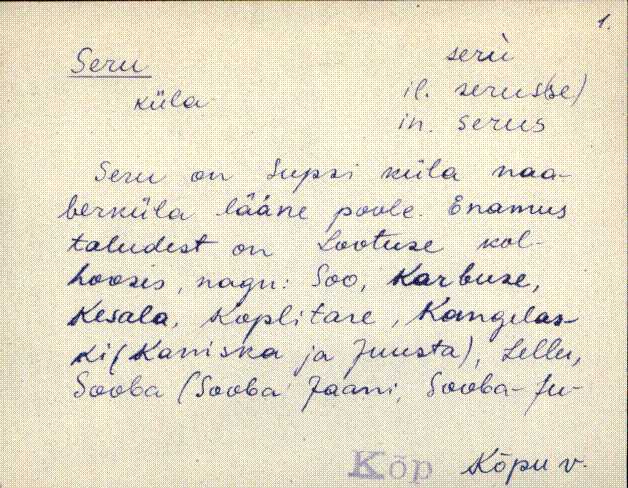 1.
Seru
küla
serù
il. serus(se)
in. serus
Seru on Supsi küla naa-
berküla lääne poole. Enamus
taludest on Lootuse kol-
hoosis, nagu: Soo, Karbuse,
Kesala, Koplitare, Kangelas-
ki (Kaniska ja Juusta), Lellu,
Sooba (Sooba Jaani, Sooba-Ju-
Kõp Kõpu v.